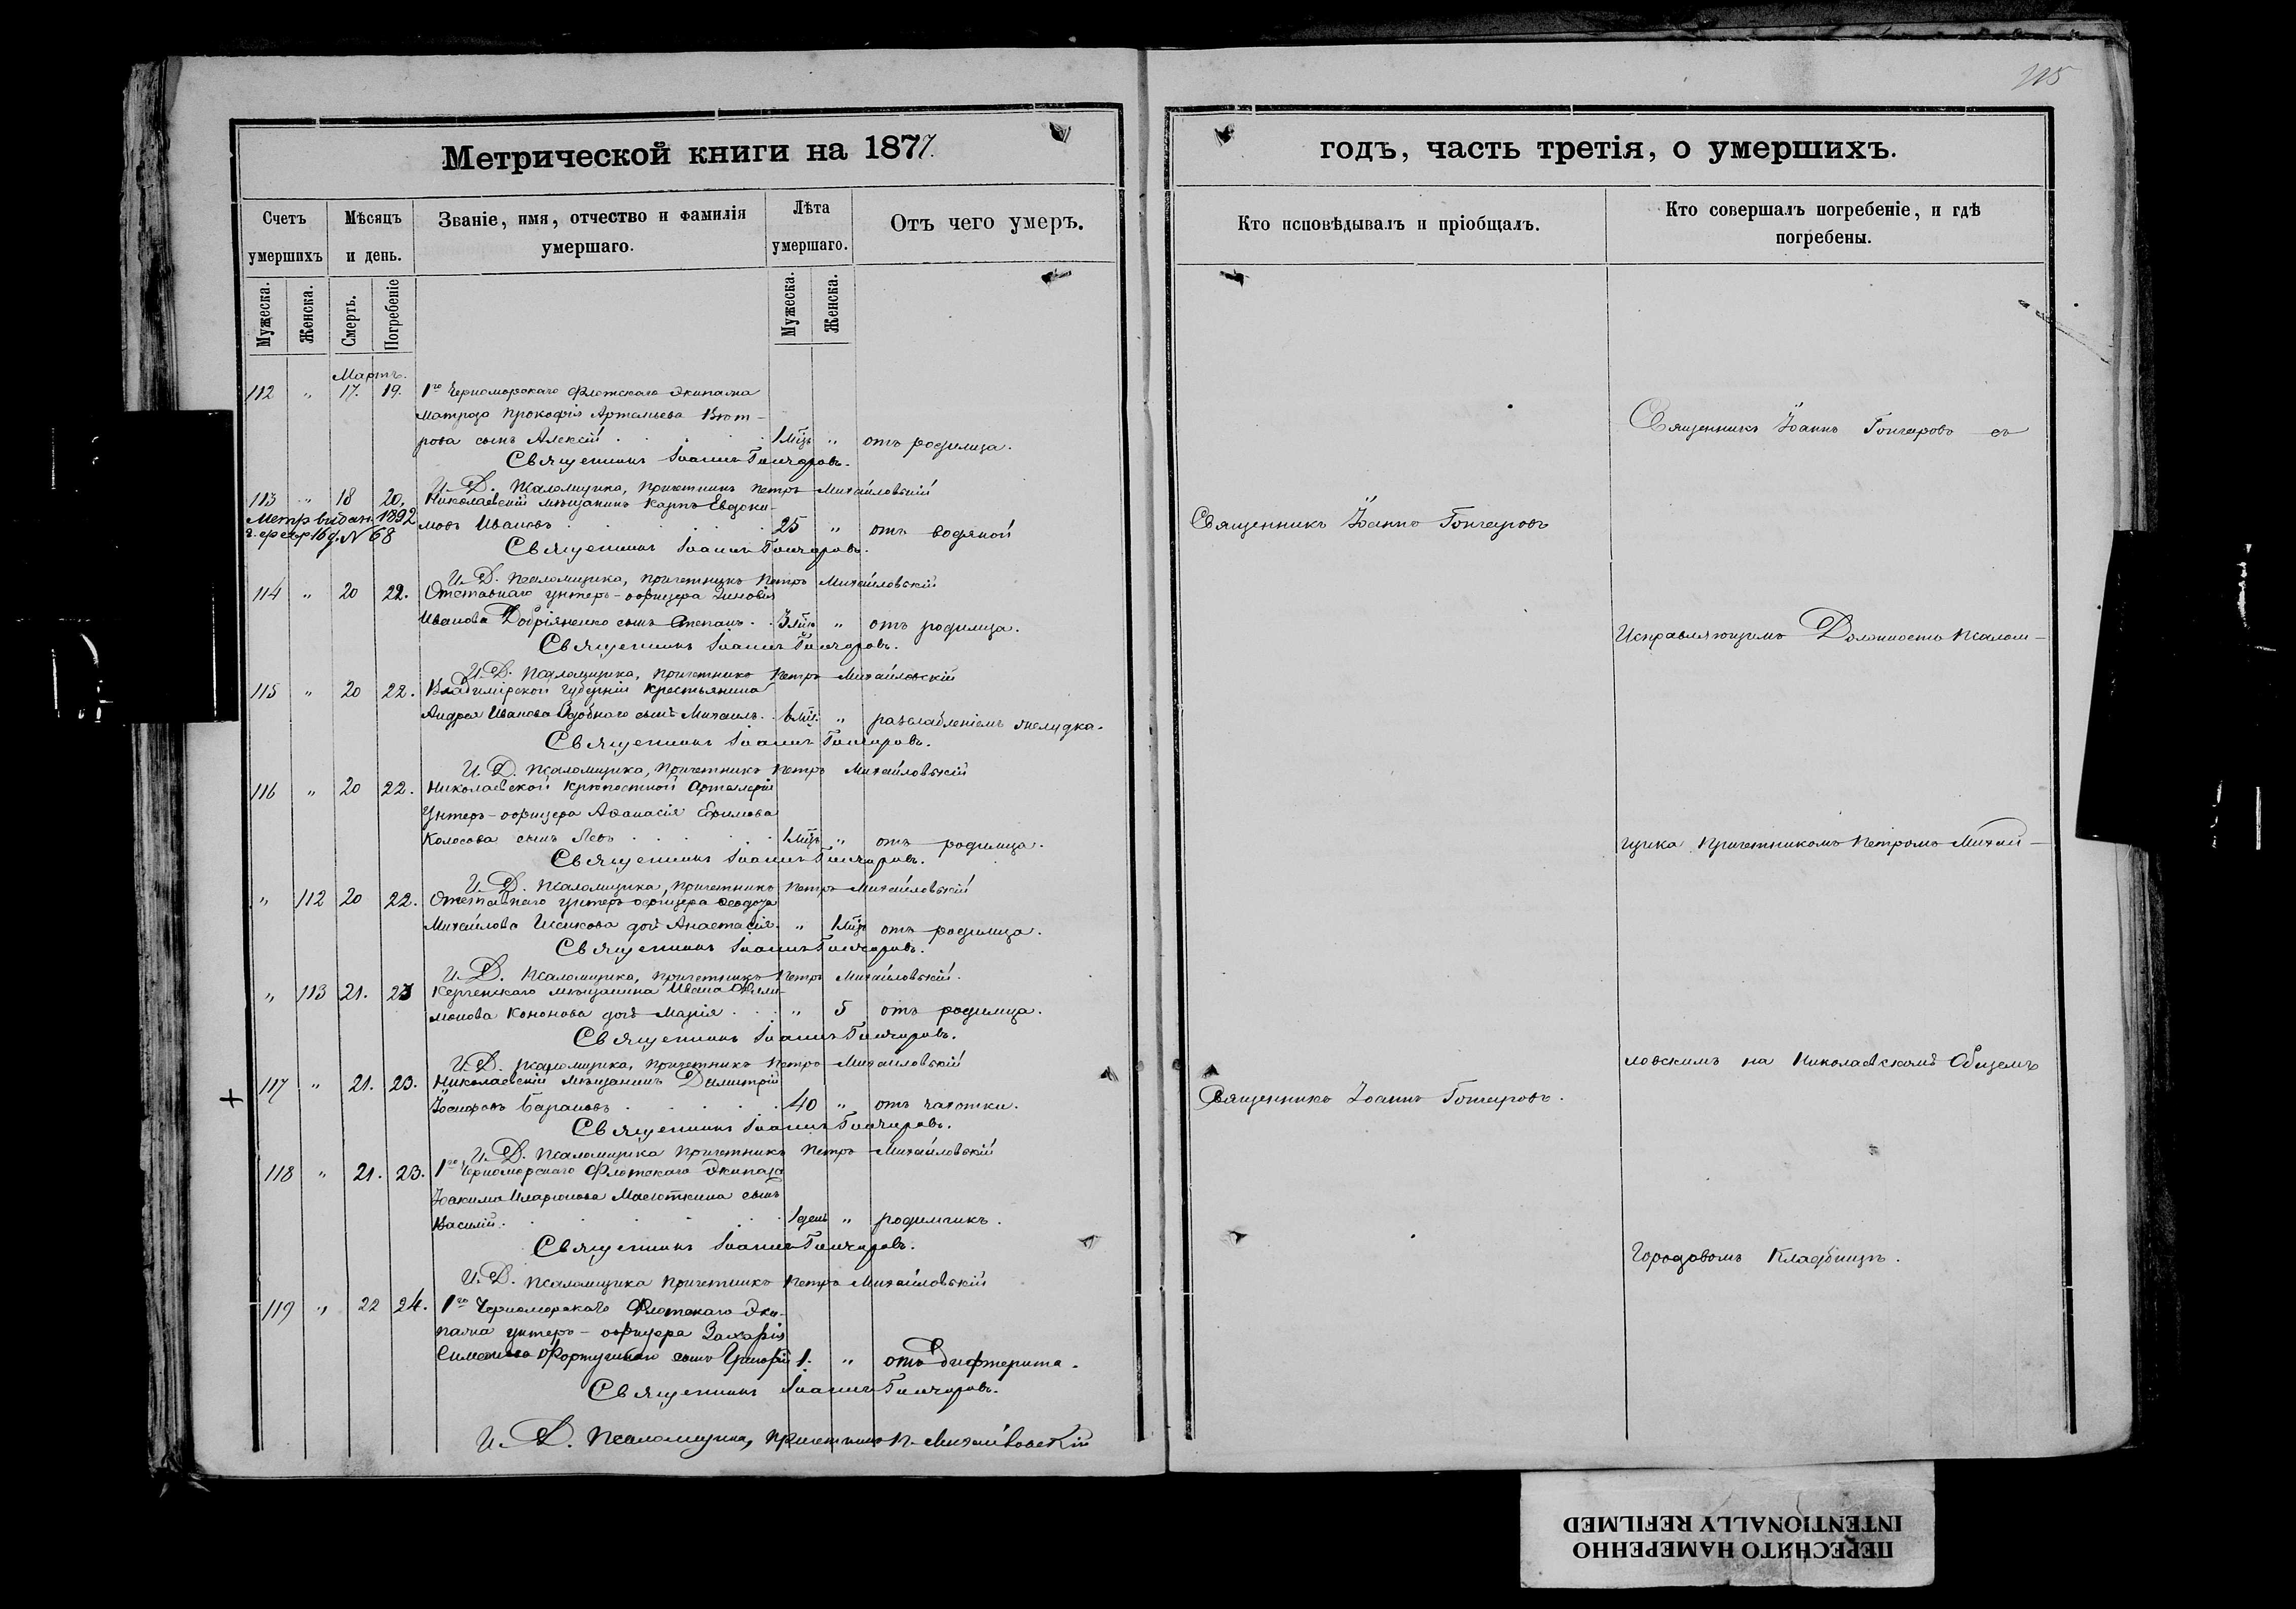 115
Метрической книги на 1877.
годъ, часть третія, о умершихъ.
Счетъ умершихъ
Мѣсяцъ и день.
Званіе, имя, отчество и фамилія умершаго.
Лѣта умершаго.
Отъ чего умеръ.
Кто исповѣдывалъ и пріобщалъ.
Кто совершалъ погребеніе, и гдѣ погребены.
Мужеска.
Женска.
Смерть.
Погребеніе
Мужеска.
Женска.
Мартъ.
112 " 17. 19. 1го Черноморскаго Флотскаго Экипажа
матроза Прокофія Артемьева
рова сынъ Алексій 1 мѣц " отъ родимца.
Священникъ Іоаннъ Гончаровъ.
И. Д. Псаломщика, Причетникъ Петръ Михайловскій
113 " 18 20. Николаевскій мѣщанинъ Карпъ Евдоки-
Метр выдан. 1892
мовъ Ивановъ 25 " отъ водяной
г. 16 д. N 68
Священникъ Іоаннъ Гончаровъ.
И. Д. Псаломщика, Причетникъ Петръ Михайловскій
114 " 20 22. Отставнаго унтеръ-офицера Зиновія
Иванова Добріяненко сынъ Степанъ 3 мѣц " отъ родимца.
Священникъ Іоаннъ Гончаровъ.
И. Д. Псаломщика, Причетникъ Петръ Михайловскій
115 " 20 22. Владимірской губерніи крестьянина
Андрея Иванова сынъ Михаилъ. 6 мѣц. " разслабленіемъ желудка.
Священникъ Іоаннъ Гончаровъ.
И. Д. Псаломщика, Причетникъ Петръ Михайловскій
116 " 20 22. Николаевской крѣпостной Артилеріи
Унтеръ-офицера Аѳанасія Ефимова
Колосова сынъ Левъ 1 мѣц " отъ родимца.
Священникъ Іоаннъ Гончаровъ.
И. Д. Псаломщика, Причетникъ Петръ Михайловскій
" 112 20 22. Отставнаго унтеръ офицера
Михайлова дочь Анастасія. " 1 мѣц отъ родимца.
Священникъ Іоаннъ Гончаровъ.
И. Д. Псаломщика, Причетникъ Петръ Михайловскій.
" 113 21. 23 Керченскаго мѣщанина Ивана Фили-
монова Кононова дочь Марія " 5 отъ родимца.
Священникъ Іоаннъ Гончаровъ.
И. Д. Псаломщика, Причетникъ Петръ Михайловскій
117 " 21. 23. Николаевскій мѣщанинъ Димитрій
Іосифовъ Барановъ 40 " отъ чахотки.
Священникъ Іоаннъ Гончаровъ.
И. Д. Псаломщика Причетникъ Петръ Михайловскій
118 " 21. 23. 1го Черноморскаго Флотскаго Экипажа
Іоакима Иларіонова Маслоткина сынъ
Василій. 1 день " родимчикъ.
Священникъ Іоаннъ Гончаровъ.
И. Д. Псаломщика Причетникъ Петръ Михайловскій
119 " 22 24. 1го Черноморскаго Флотскаго Эки-
пажа унтеръ-офицера Захарія
Симонова сынъ Григорій 1. " отъ дифтерита.
Священникъ Іоаннъ Гончаровъ.
И. Д. Псаломщика, Причетникъ П. Михайловскій
Священникъ Іоаннъ Гончаровъ
Священникъ Іоаннъ Гончаровъ.
Священникъ Іоаннъ Гончаровъ съ
Исправляющимъ Должность Псалом-
щика Причетникомъ Петромъ Михай-
ловскимъ на Николаевскомъ Общемъ
Городовомъ Кладбищѣ.
ПЕРЕСНЯТО НАМЕРЕННО
INTENTIONALLY REFILMED